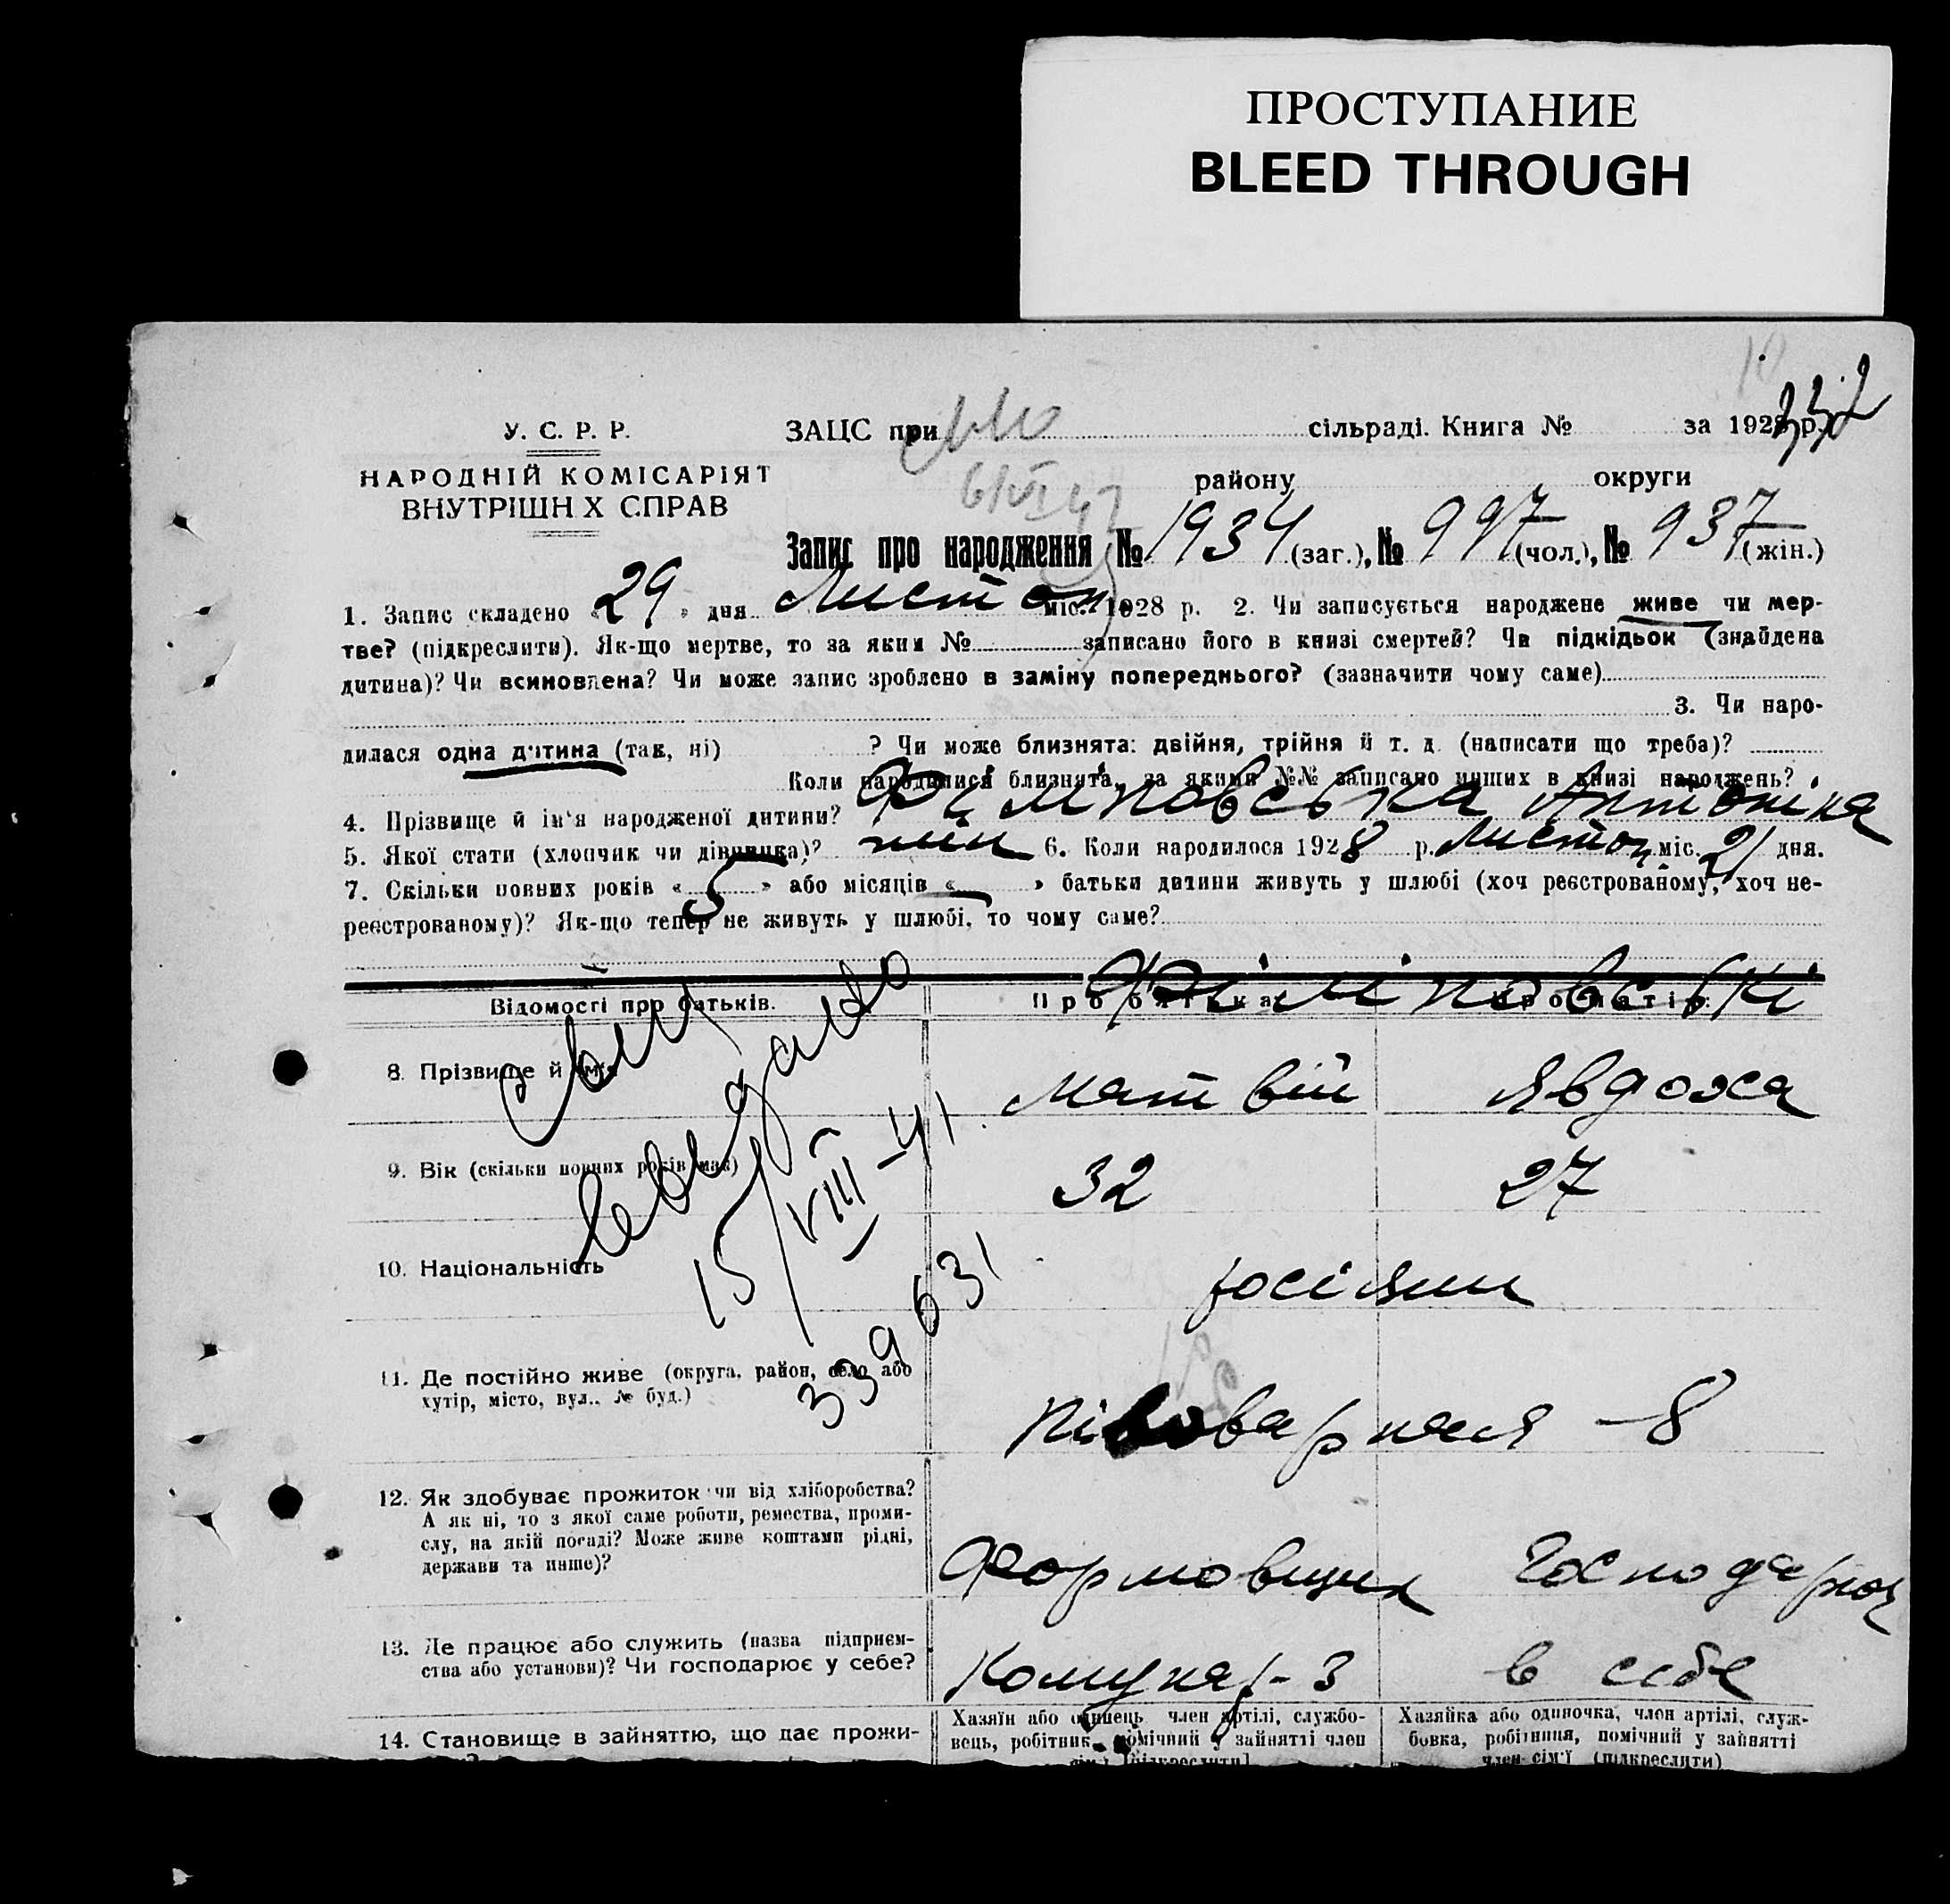 ПРОСТУПАНИЕ
BLEED THROUGH
332
У. С. Р. Р.
НАРОДНІЙ КОМІСАРІЯТ
ВНУТРІШН Х СПРАВ
ЗАЦС при сільраді. Книга № за 1928 р.
району округи
Запис про народження № 1934 (заг.), № 997 (чол.), № 937 (жін.)
1. Запис складено « 29 » дня Листоп міс. 1928 р. 2. Чи записується народжене живе чи мер-
тве? (підкреслити). Як-що мертве, то за яким № записано його в книзі смертей? Чи підкідьок (знайдена
дитина)? Чи всиновлена? Чи може запис зроблено в заміну попереднього? (зазначити чому саме)
3. Чи наро-
дилася одна дитина (так, ні) ? Чи може близнята: двійня, трійня й т. д. (написати що треба)?
Коли народилися близнята, за якими №№ записано инших в книзі народжень?
4. Прізвище й ім'я народженої дитини? Філіповська Антоніна
5. Якої стати (хлопчик чи дівчинка)? жін 6. Коли народилося 1928 р. Листоп міс. 21 дня.
7. Скільки повних років « 5 » або місяців « — » батьки дитини живуть у шлюбі (хоч реєстрованому, хоч не-
реєстрованому)? Як-що тепер не живуть у шлюбі, то чому саме?
Відомості про батьків. Про батька Про матір
Філіповські
8. Прізвище й ім'я Матвій Явдоха
9. Вік (скільки повних років має) 32 27
10. Національність росіяни
11. Де постійно живе (округа, район, село або
хутір, місто, вул., № буд.) Пивоварная - 8
12. Як здобуває прожиток чи від хліборобства?
А як ні, то з якої саме роботи, ремества, проми-
слу, на якій посаді? Може живе коштами рідні,
держави та инше)? Формовщик Господарює
13. Де працює або служить (назва підприєм-
ства або установи)? Чи господарює у себе? Комунар-З в себе
14. Становище в зайняттю, що дає прожи-
Хазяїн або одинець, член артілі, службо-
вець, робітник, помічний у зайнятті член
сім'ї [підкреслити]
Хазяйка або одиночка, член артілі, служ-
бовка, робітниця, помічний у зайнятті
член сім'ї (підкреслити)
15/VIII-41.
339631